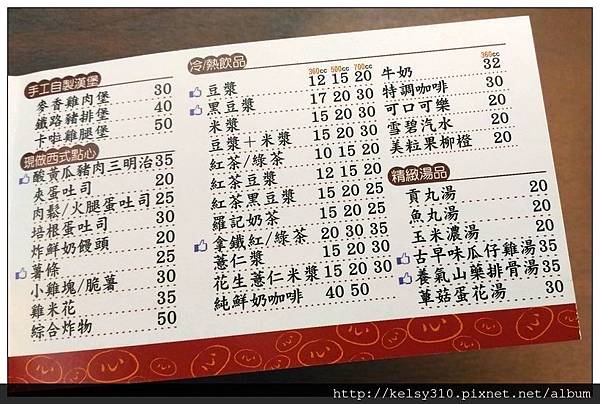 手工自製漢堡
麥香雞肉堡 30
鐵路豬排堡 40
卡啦雞腿堡 50
現做西式點心
酸黃瓜豬肉三明治 35
夾蛋吐司 20
肉鬆/火腿蛋吐司 25
培根蛋吐司 30
炸鮮奶饅頭 20
薯條 25
小雞塊/脆薯 30
雞米花 35
綜合炸物 50
冷/熱飲品
360cc 500cc 700cc
豆漿 12 15 20
黑豆漿 17 20 30
米漿 15 20 30
豆漿+米漿 15 20 30
紅茶/綠茶 10 15 20
紅茶豆漿 12 15 20
紅茶黑豆漿 15 20 25
羅記奶茶 15 20 25
拿鐵紅/綠茶 20 30 35
薏仁漿 15 20 30
花生薏仁米漿 15 20 30
純鮮奶咖啡 40 50
360cc
牛奶 32
特調咖啡 30
可口可樂 20
雪碧汽水 20
美粒果柳橙 20
精緻湯品
貢丸湯 20
魚丸湯 20
玉米濃湯 20
古早味瓜仔雞湯 35
養氣山藥排骨湯 35
蕈菇蛋花湯 30
http://kelsy310.pixnet.net/album